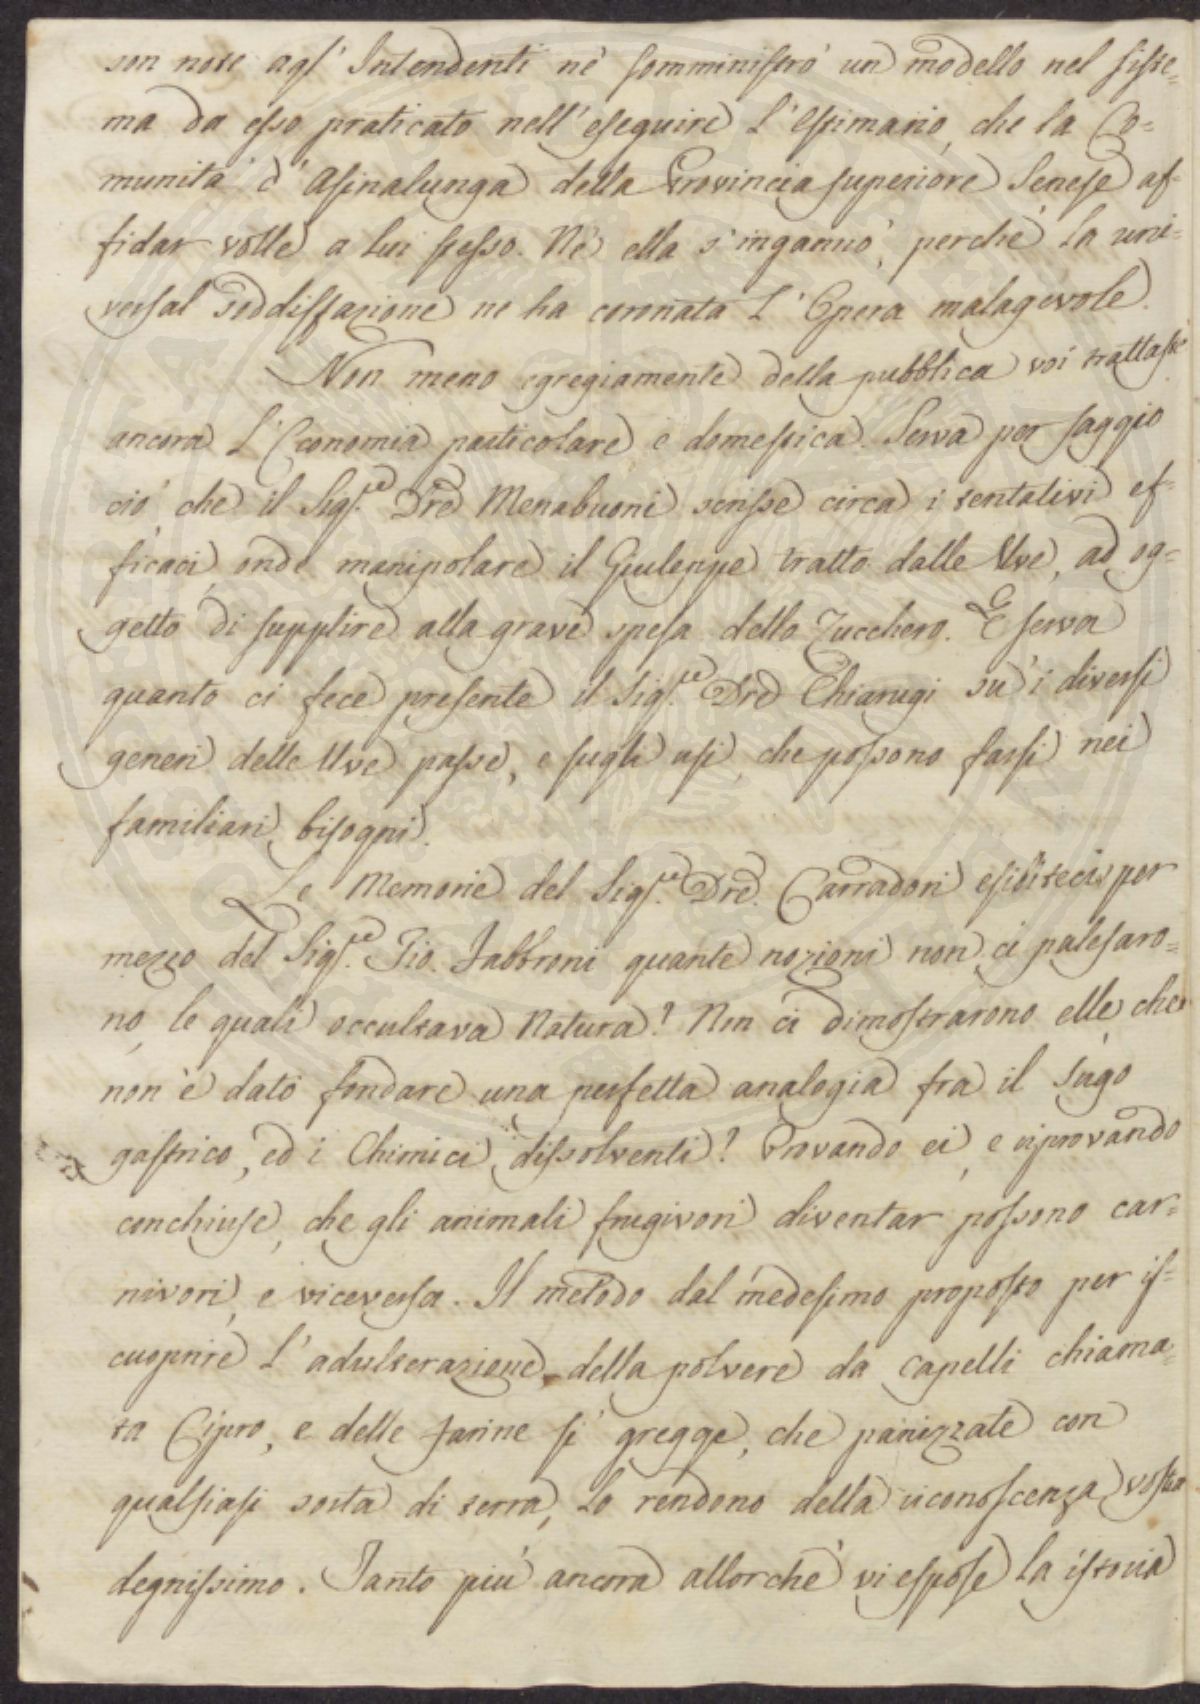 son note agl' Intendenti nè somministrò un modello nel siste=
ma da esso praticato nell'eseguire l'Estimario, che la Co=
munità d'Asinalunga della Provincia superiore Senese af=
fidar volle a lui stesso. Nè ella s'ingannò, perchè la uni=
versal soddisfazione ne ha coronata l'Opera malagevole.
Non meno egregiamente della pubblica voi trattaste
ancora l'Economia particolare e domestica. Serva per saggio
ciò, che il Sigre. Dre Menabuoni scrisse circa i tentativi ef=
ficaci, onde manipolare il Giuleppe tratto dalle Uve, ad og=
getto di supplire alla grave spesa dello Zucchero. E serva
quanto ci fece presente il Sigre. Dre Chiarugi su' i diversi
generi delle Uve passe, e sugli usi, che possono farsi nei
familiari bisogni.
Le Memorie del Sigre. Dre. Carradori esibiteci per
mezzo del Sigre. Gio. Fabbroni quante nozioni non ci palesaro=
no, le quali occultava Natura? Non ci dimostrarono elle, che
non è dato fondare una perfetta analogia fra il sugo
gastrico, ed i Chimici dissolventi? Provando ei, e riprovando
conchiuse, che gli animali frugivori diventar possono car=
nivori, e viceversa. Il metodo dal medesimo proposto per is=
cuoprire l'adulterazione della polvere da capelli chiama=
ta Cipro, e delle farine sì gregge, che panizzate con
qualsiasi sorta di terra, lo rendono della riconoscenza vostra
degnissimo. Tanto più ancora allorchè vi espose la istoria